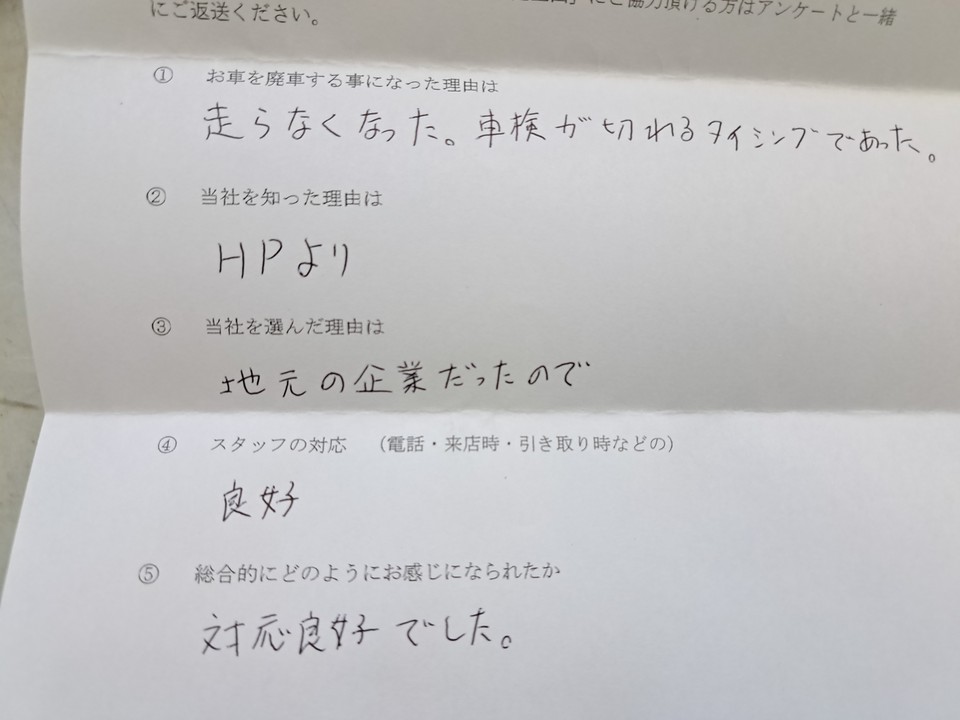 にご協力頂ける方はアンケートと一緒
にご返送ください。
① お車を廃車する事になった理由は
走らなくなった。車検が切れるタイミングであった。
② 当社を知った理由は
HPより
③ 当社を選んだ理由は
地元の企業だったので
④ スタッフの対応 （電話・来店時・引き取り時などの）
良好
⑤ 総合的にどのようにお感じになられたか
対応良好でした。